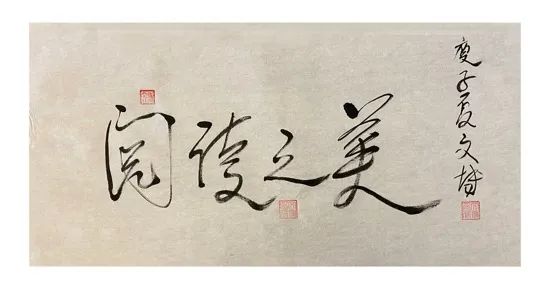 阅读之美
庚子夏文